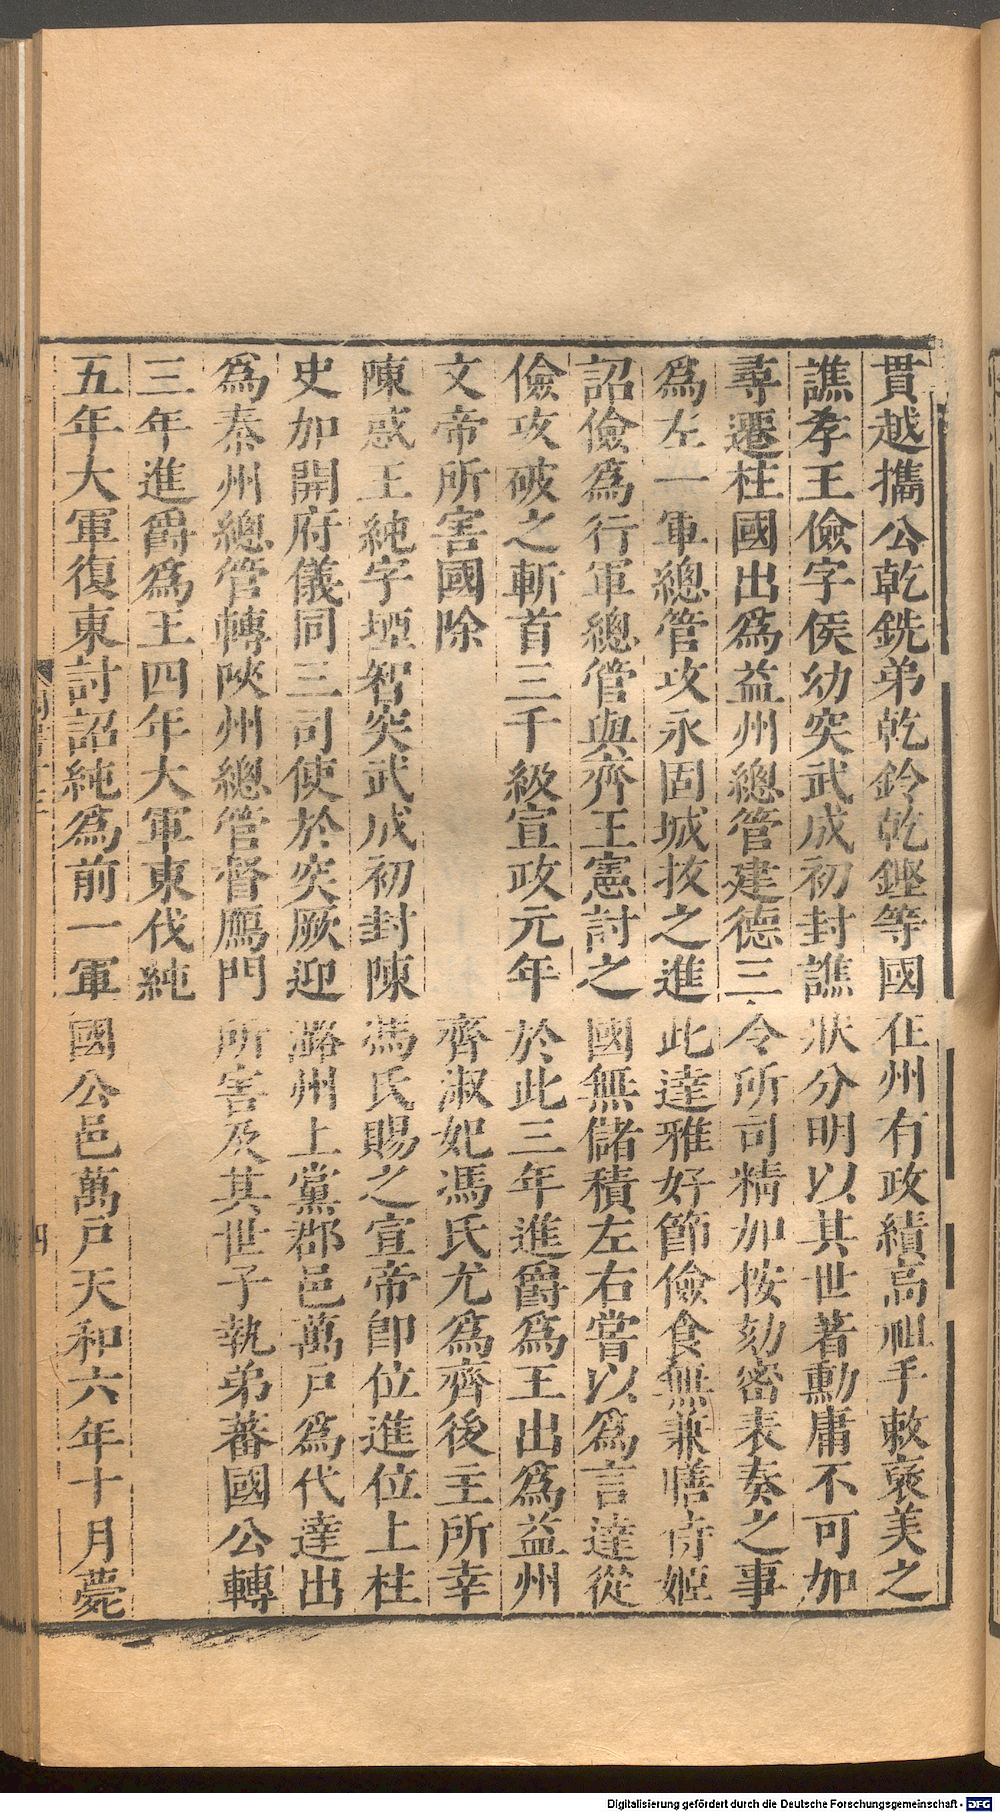 貫越攜公乾銑弟乾鈴乾鏗等國在州有政績高祖手敕褒美之
譙孝王儉字侯幼突武成初封譙狀分明以其世著勳庸不可加
尋遷柱國出為益州總管建德三令所司精加按劾密表奏之事
為左一軍總管攻永固城拔之進此達雅好節儉食無兼膳侍姬
詔儉為行軍總管與齊王憲討之國無儲積左右嘗以為言達從
儉攻破之斬首三千級宣政元年於此三年進爵為王出為益州
文帝所害國除齊淑妃馮氏尤為齊後主所幸
陳惑王純字堙智突武成初封陳馮氏賜之宣帝卽位進位上柱
史加開府儀同三司使於突厥迎潞州上黨郡邑萬戶為代達出
為秦州總管轉陝州總管督鴈門所害及其世子執弟蕃國公轉
三年進爵為王四年大軍東伐純
五年大軍復東討詔純為前一軍國公邑萬戶天和六年十月薨
四
Digitalisierung gefördert durch die Deutsche Forschungsgemeinschaft - DFG